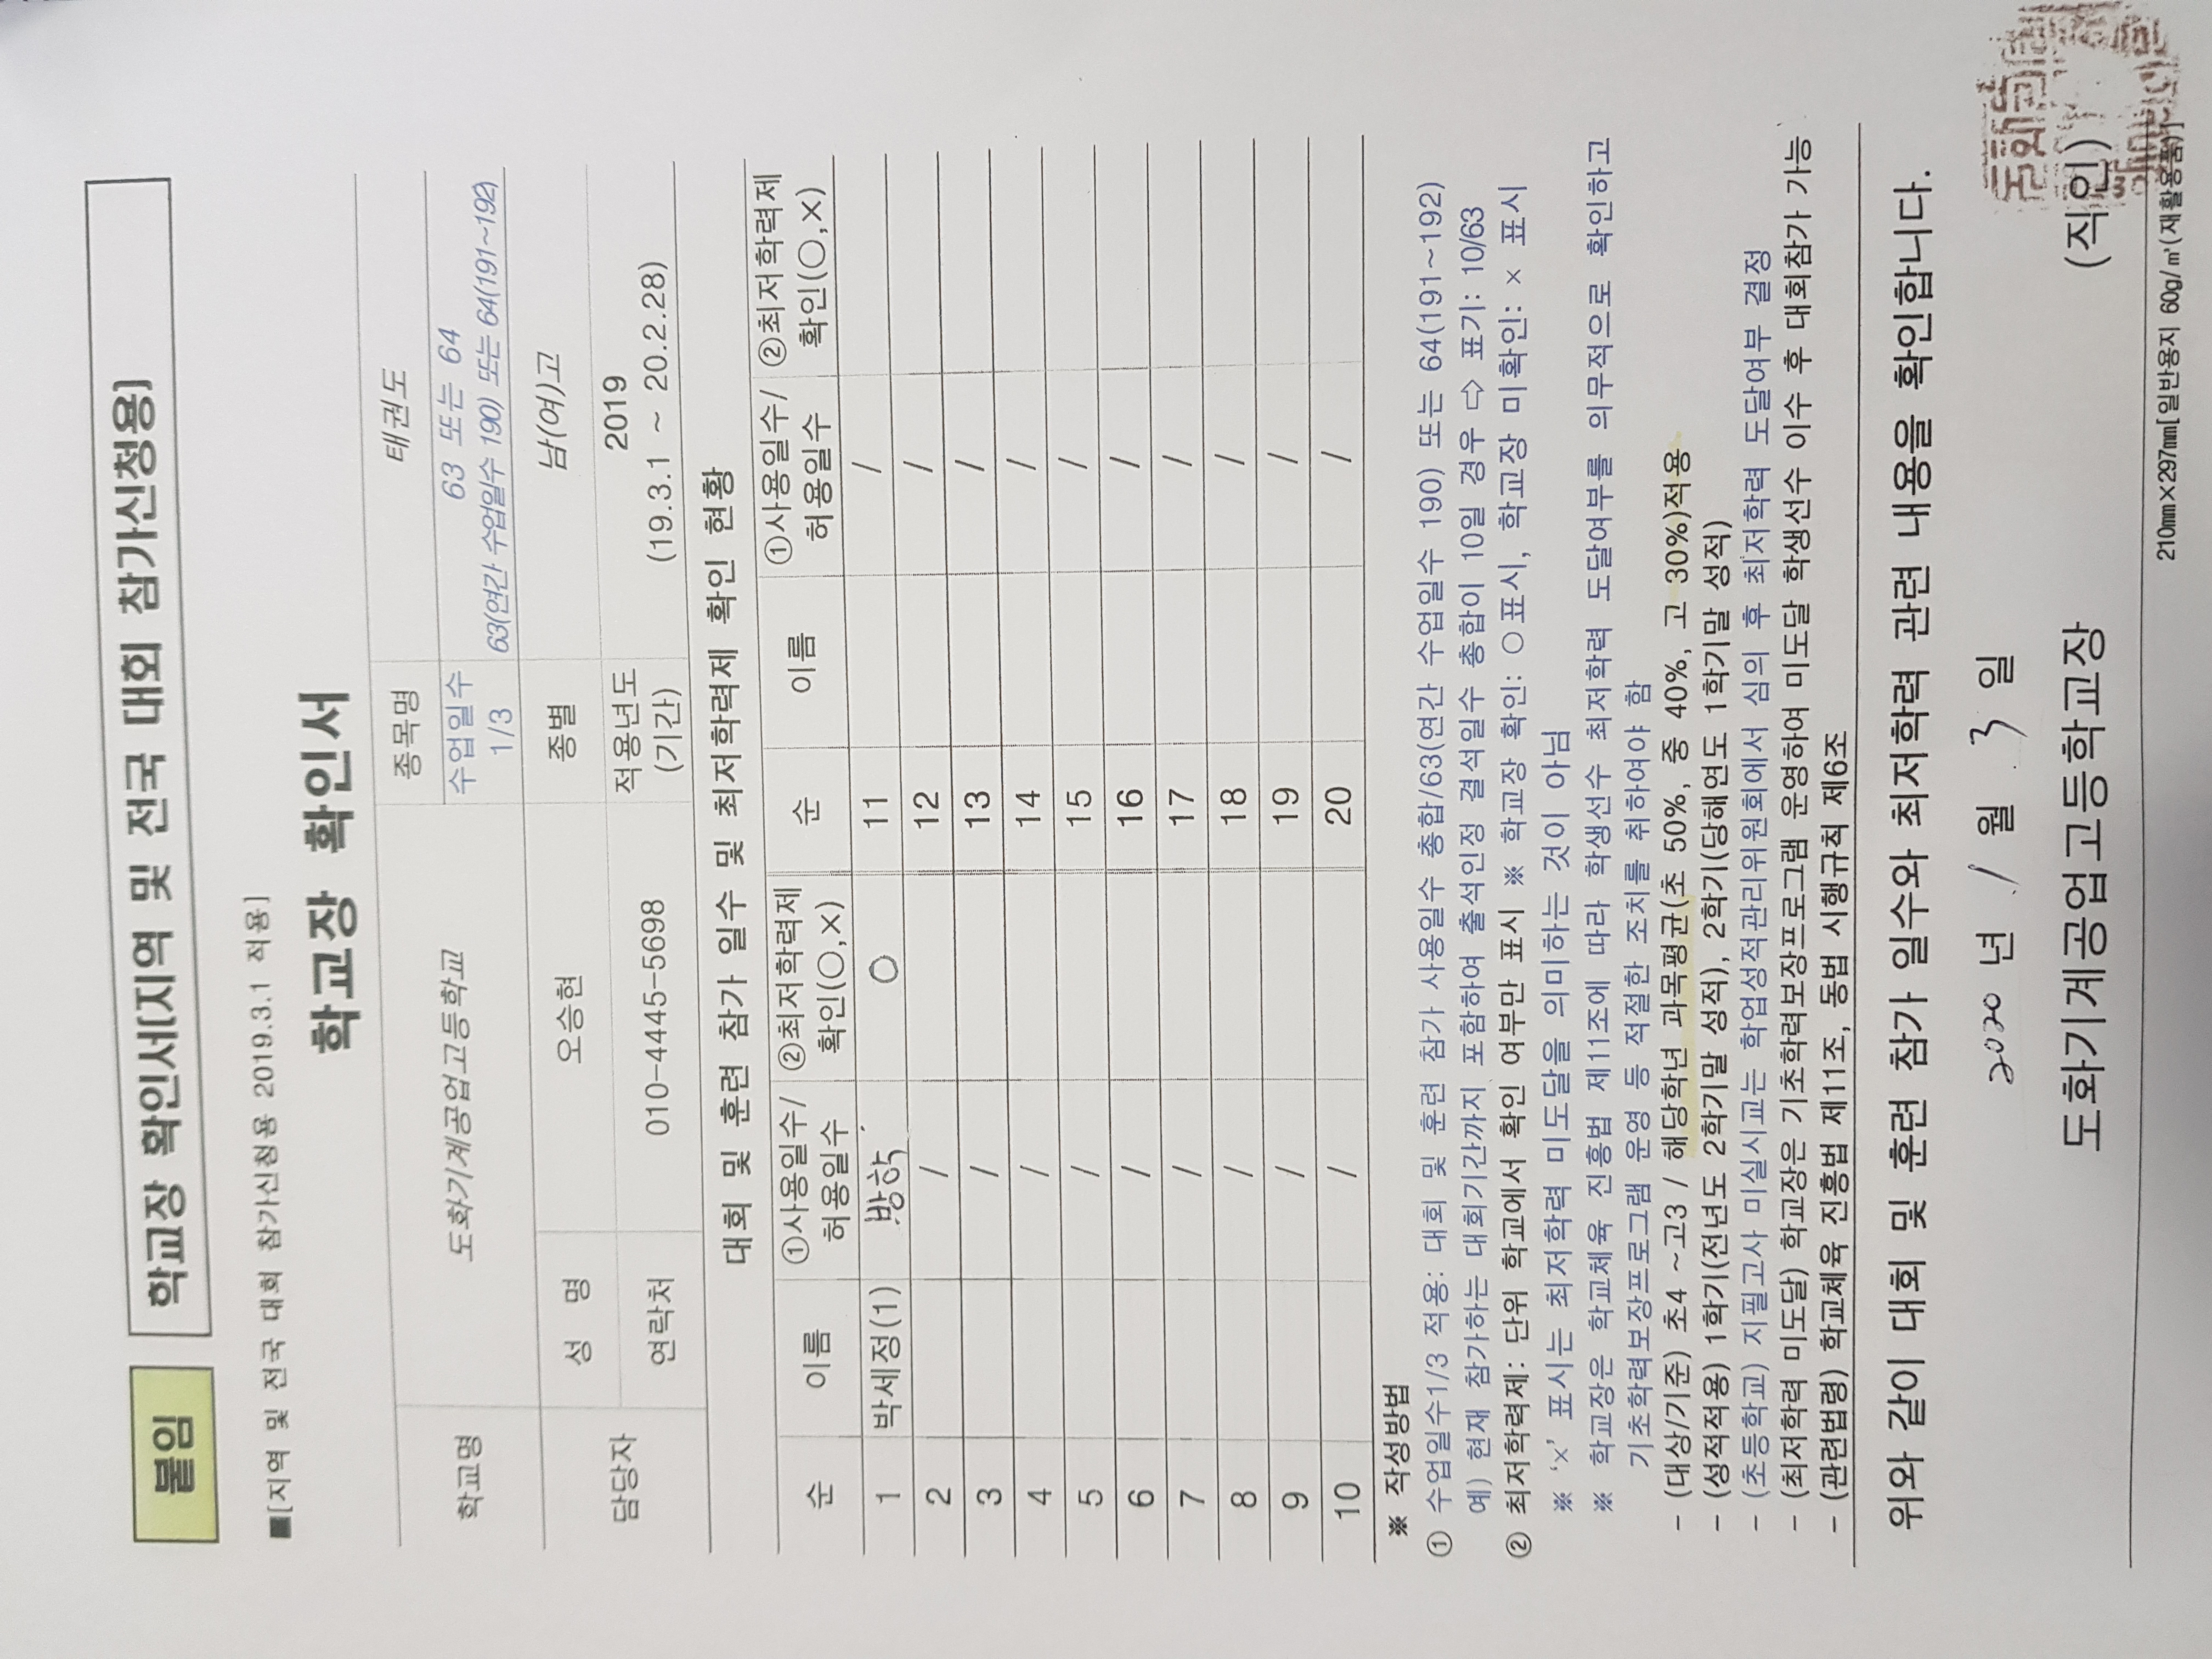 붙임 학교장 확인서[지역 및 전국 대회 참가신청용]
■[지역 및 전국 대회 참가신청용 2019.3.1 적용]
학교장 확인서
학교명 도화기계공업고등학교 종목명 태권도
수업일수 1/3 63 또는 64
63(연간 수업일수 190) 또는 64(191~192)
담당자 성 명 오승현 종별 남(여)고
연락처 010-4445-5698 적용년도 (기간) 2019
(19.3.1 ~ 20.2.28)
대회 및 훈련 참가 일수 및 최저학력제 확인 현황
순 이름 ①사용일수/허용일수 ②최저학력제 확인(○,×) 순 이름 ①사용일수/허용일수 ②최저학력제 확인(○,×)
1 박세정(1) 방학 ○ 11 /
2 / 12 /
3 / 13 /
4 / 14 /
5 / 15 /
6 / 16 /
7 / 17 /
8 / 18 /
9 / 19 /
10 / 20 /
※ 작성방법
① 수업일수1/3 적용: 대회 및 훈련 참가 사용일수 총합/63(연간 수업일수 190) 또는 64(191~192)
예) 현재 참가하는 대회기간까지 포함하여 출석인정 결석일수 총합이 10일 경우 ⇨ 표기: 10/63
② 최저학력제: 단위 학교에서 확인 여부만 표시 ※ 학교장 확인: ○표시, 학교장 미확인: × 표시
※ ‘×’ 표시는 최저학력 미도달을 의미하는 것이 아님
※ 학교장은 학교체육 진흥법 제11조에 따라 학생선수 최저학력 도달여부를 의무적으로 확인하고
기초학력보장프로그램 운영 등 적절한 조치를 취하여야 함
- (대상/기준) 초4 ~고3 / 해당학년 과목평균(초 50%, 중 40%, 고 30%)적용
- (성적적용) 1학기(전년도 2학기말 성적), 2학기(당해연도 1학기말 성적)
- (초등학교) 지필고사 미실시교는 학업성적관리위원회에서 심의 후 최저학력 도달여부 결정
- (최저학력 미도달) 학교장은 기초학력보장프로그램 운영하여 미도달 학생선수 이수 후 대회참가 가능
- (관련법령) 학교체육 진흥법 제11조, 동법 시행규칙 제6조
위와 같이 대회 및 훈련 참가 일수와 최저학력 관련 내용을 확인합니다.
2020 년 1 월 3 일
도화기계공업고등학교장 (직인)
210mm×297mm[일반용지 60g/㎡(재활용품)]